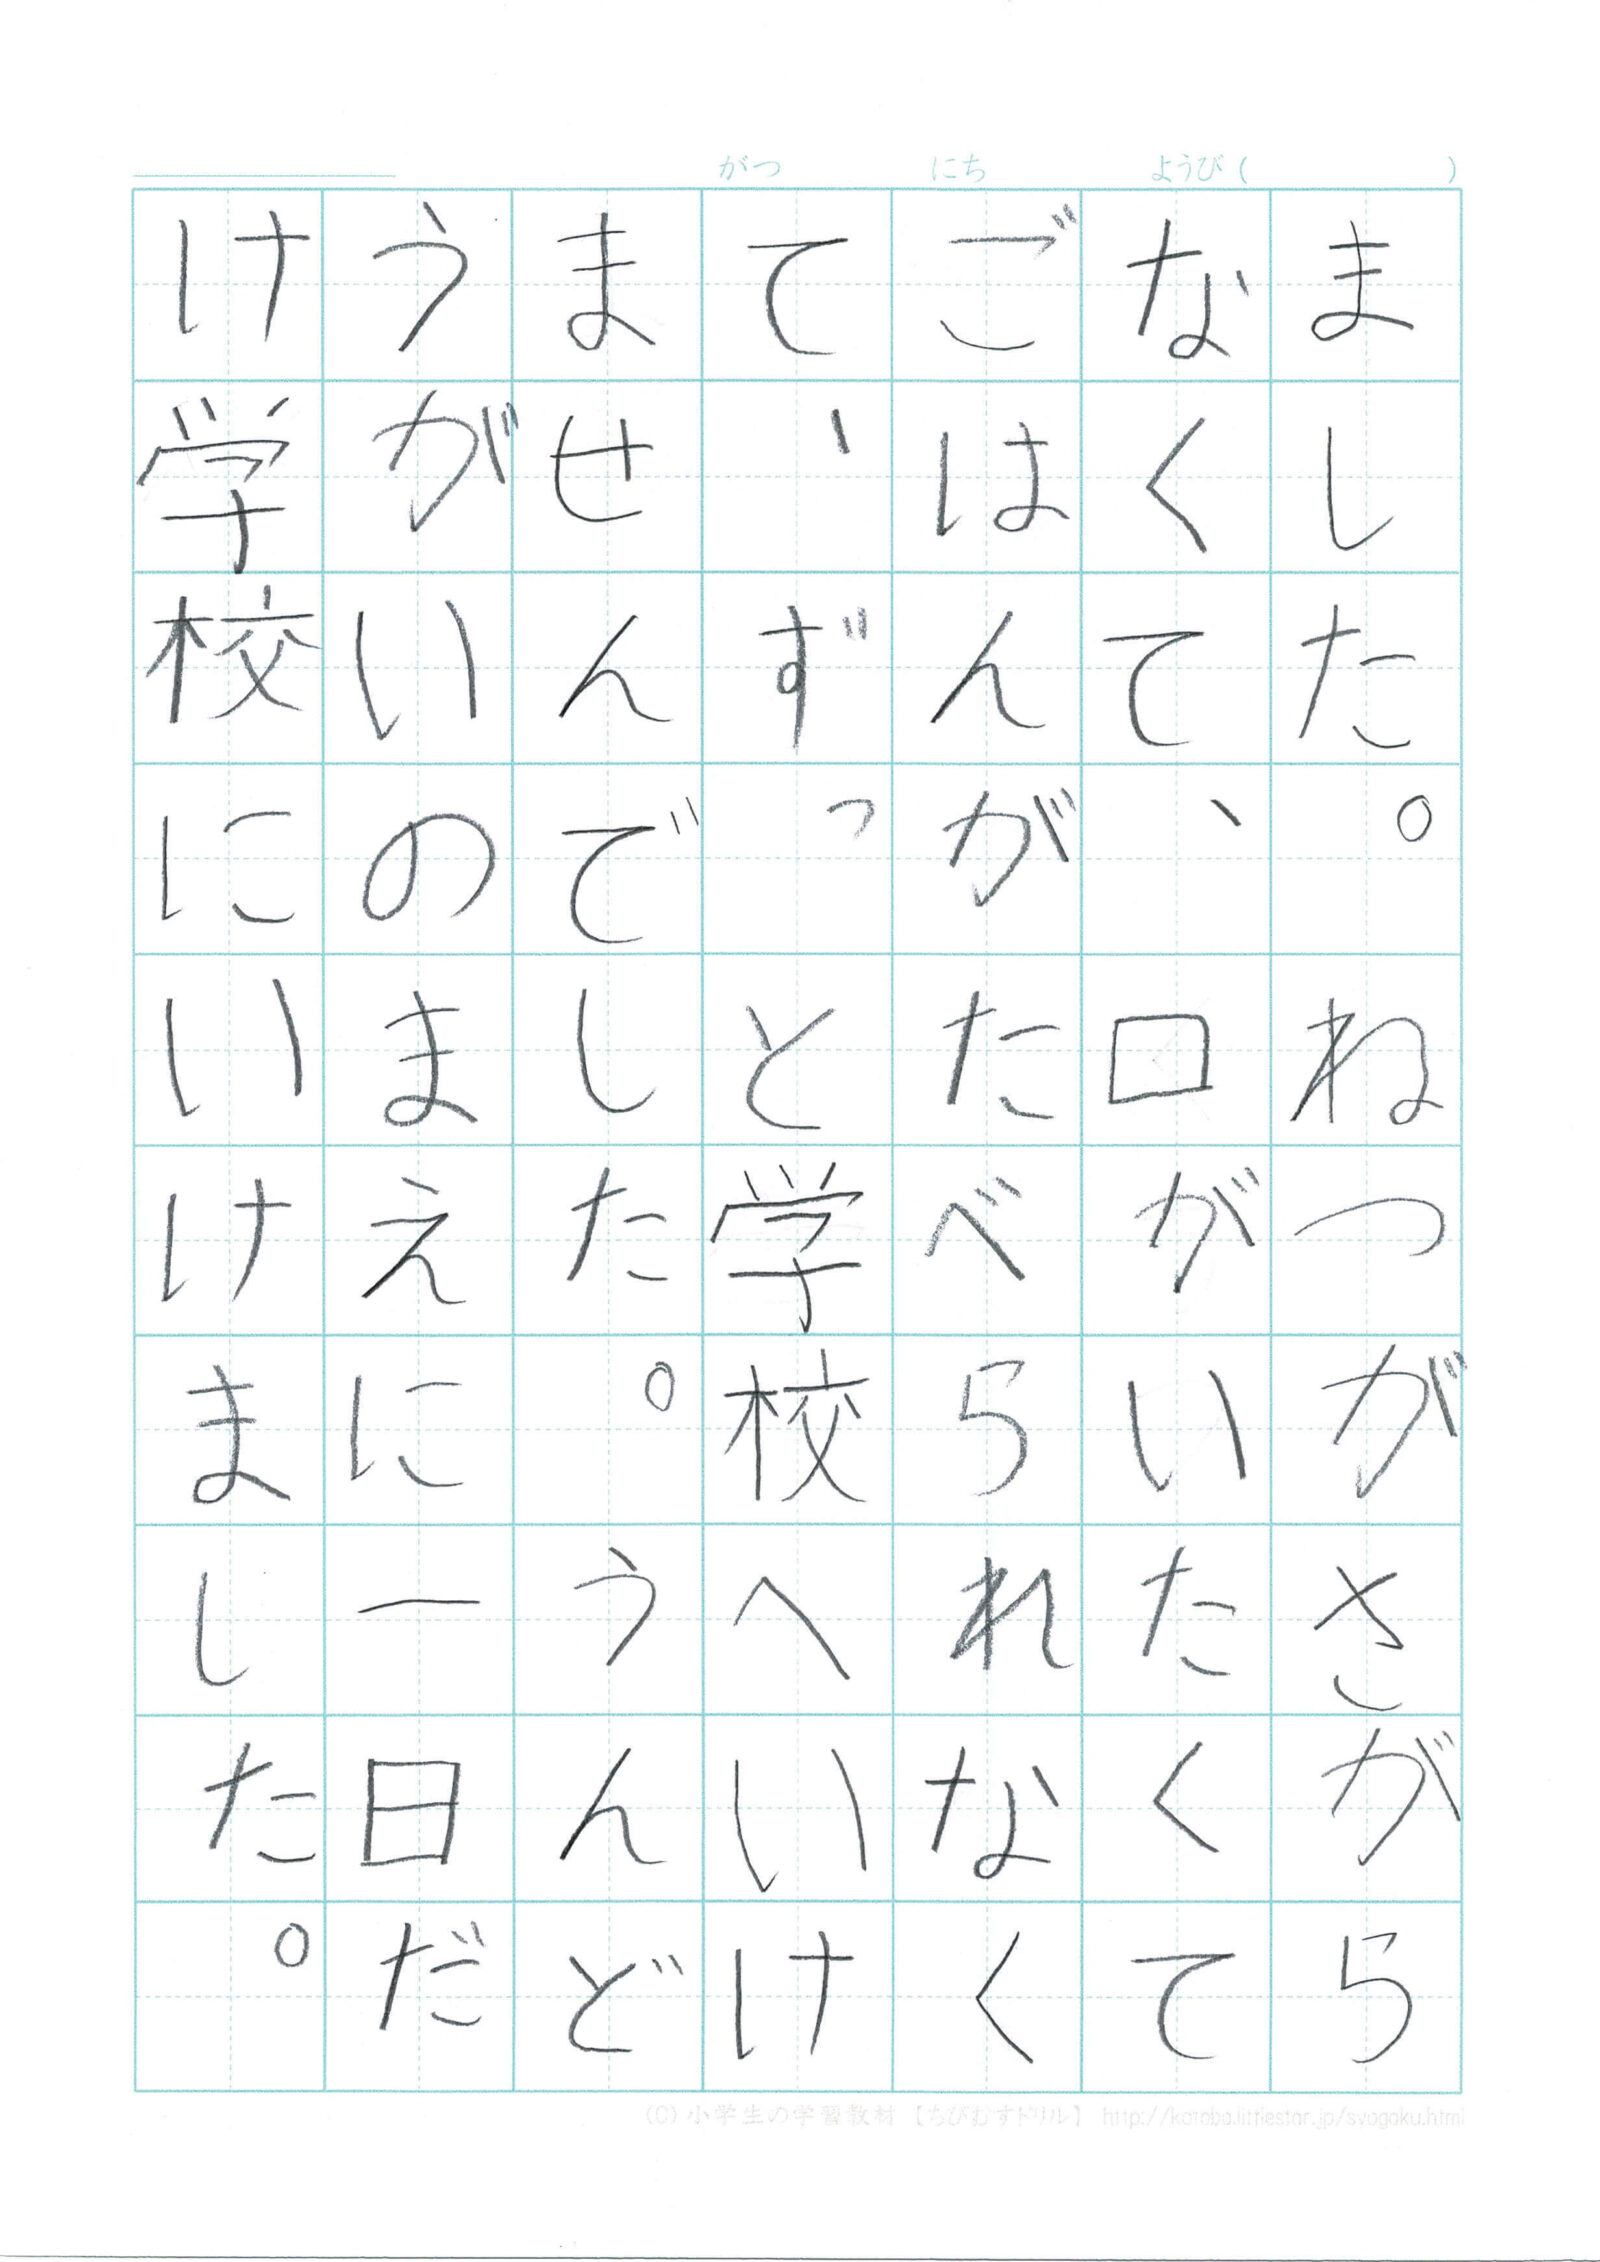 がつ にち ようび( )
ました。ねつがさがら
なくて、口がいたくて
ごはんがたべられなく
て、ずっと学校へいけ
ませんでした。うんど
うがいのまえに一日だ
け学校にいけました。
(C)小学生の学習教材【ちびむすドリル】 http://kotoba.littlestar.jp/syogaku.html